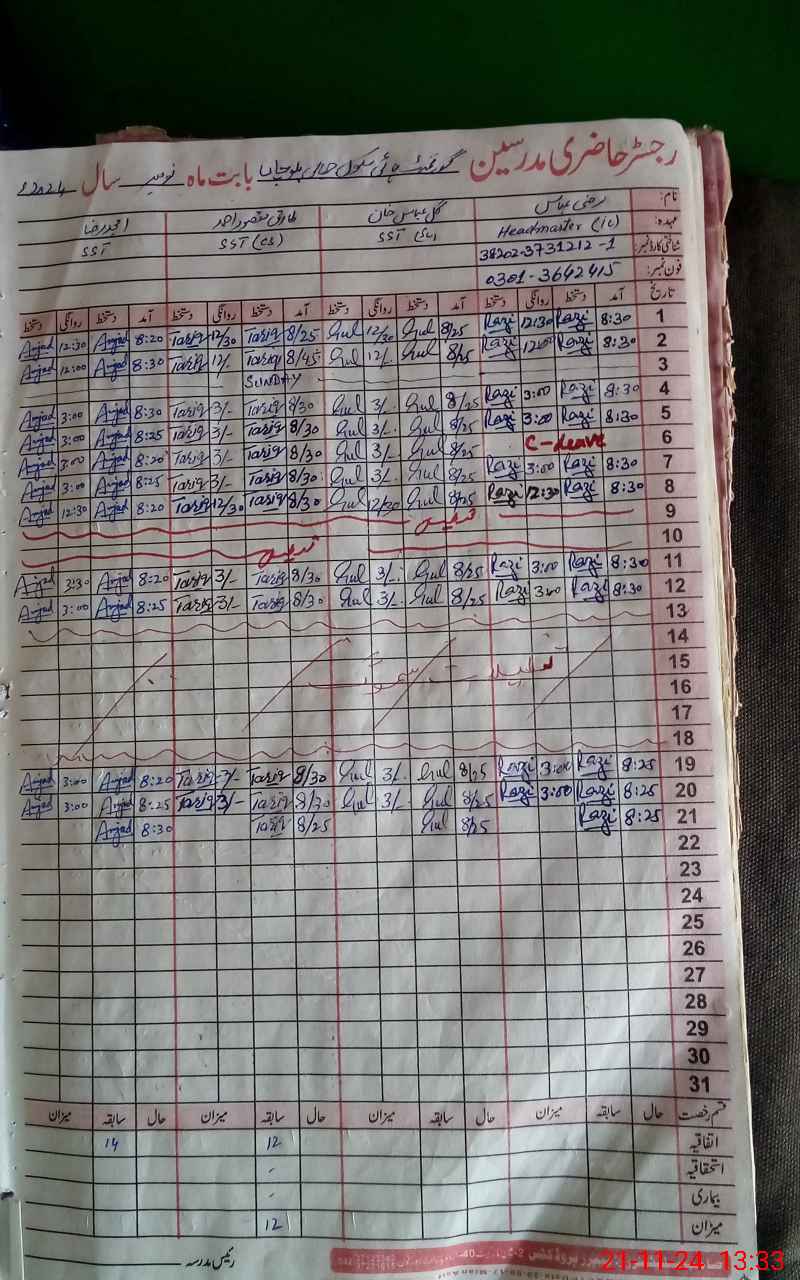 رجسٹر حاضری مدرسین گورنمنٹ ہائی سکول بابت ماہ نومبر سال 2024ء
نام: رضی عباس گل عباس خان طارق مقصود احمد امجد رضا
عہدہ: Headmaster (i/c) SST SST (CS) SST
شناختی کارڈ نمبر: 38202-3731212-1
فون نمبر: 0301-3642415
تاریخ آمد دستخط روانگی دستخط آمد دستخط روانگی دستخط آمد دستخط روانگی دستخط آمد دستخط روانگی دستخط
1 8:30 Razi 12:30 Razi 8/25 Gul 12/30 Gul 8/25 Tariq 12/30 Tariq 8:20 Amjad 12:30 Amjad
2 8:30 Razi 12:00 Razi 8/25 Gul 12/- Gul 8/45 Tariq 12/- Tariq 8:30 Amjad 12:00 Amjad
3 SUNDAY
4 8:30 Razi 3:00 Razi 8/25 Gul 3/- Gul 8/30 Tariq 3/- Tariq 8:30 Amjad 3:00 Amjad
5 8:30 Razi 3:00 Razi 8/25 Gul 3/- Gul 8/30 Tariq 3/- Tariq 8:25 Amjad 3:00 Amjad
6 C-Leave 8/25 Gul 3/- Gul 8/30 Tariq 3/- Tariq 8:20 Amjad 3:00 Amjad
7 8:30 Razi 3:00 Razi 8/25 Gul 3/- Gul 8/30 Tariq 3/- Tariq 8:25 Amjad 3:00 Amjad
8 8:30 Razi 12:30 Razi 8/25 Gul 12/30 Gul 8/30 Tariq 12/30 Tariq 8:20 Amjad 12:30 Amjad
9
10
11 8:30 Razi 3:00 Razi 8/25 Gul 3/- Gul 8/30 Tariq 3/- Tariq 8:20 Amjad 3:30 Amjad
12 8:30 Razi 3:00 Razi 8/25 Gul 3/- Gul 8/30 Tariq 3/- Tariq 8:25 Amjad 3:00 Amjad
13
14
15
16
17
18
19 8:25 Razi 3:00 Razi 8/25 Gul 3/- Gul 8/30 Tariq 3/- Tariq 8:20 Amjad 3:00 Amjad
20 8:25 Razi 3:00 Razi 8/25 Gul 3/- Gul 8/30 Tariq 3/- Tariq 8:25 Amjad 3:00 Amjad
21 8:25 Razi 8/25 Gul 8/25 Tariq 8:30 Amjad
22
23
24
25
26
27
28
29
30
31
قسم رخصت حال سابقہ میزان حال سابقہ میزان حال سابقہ میزان حال سابقہ میزان
اتفاقیہ 12 14
استحقاقیہ
بیماری
میزان 12
رئیس مدرسہ
21-11-24 13:33